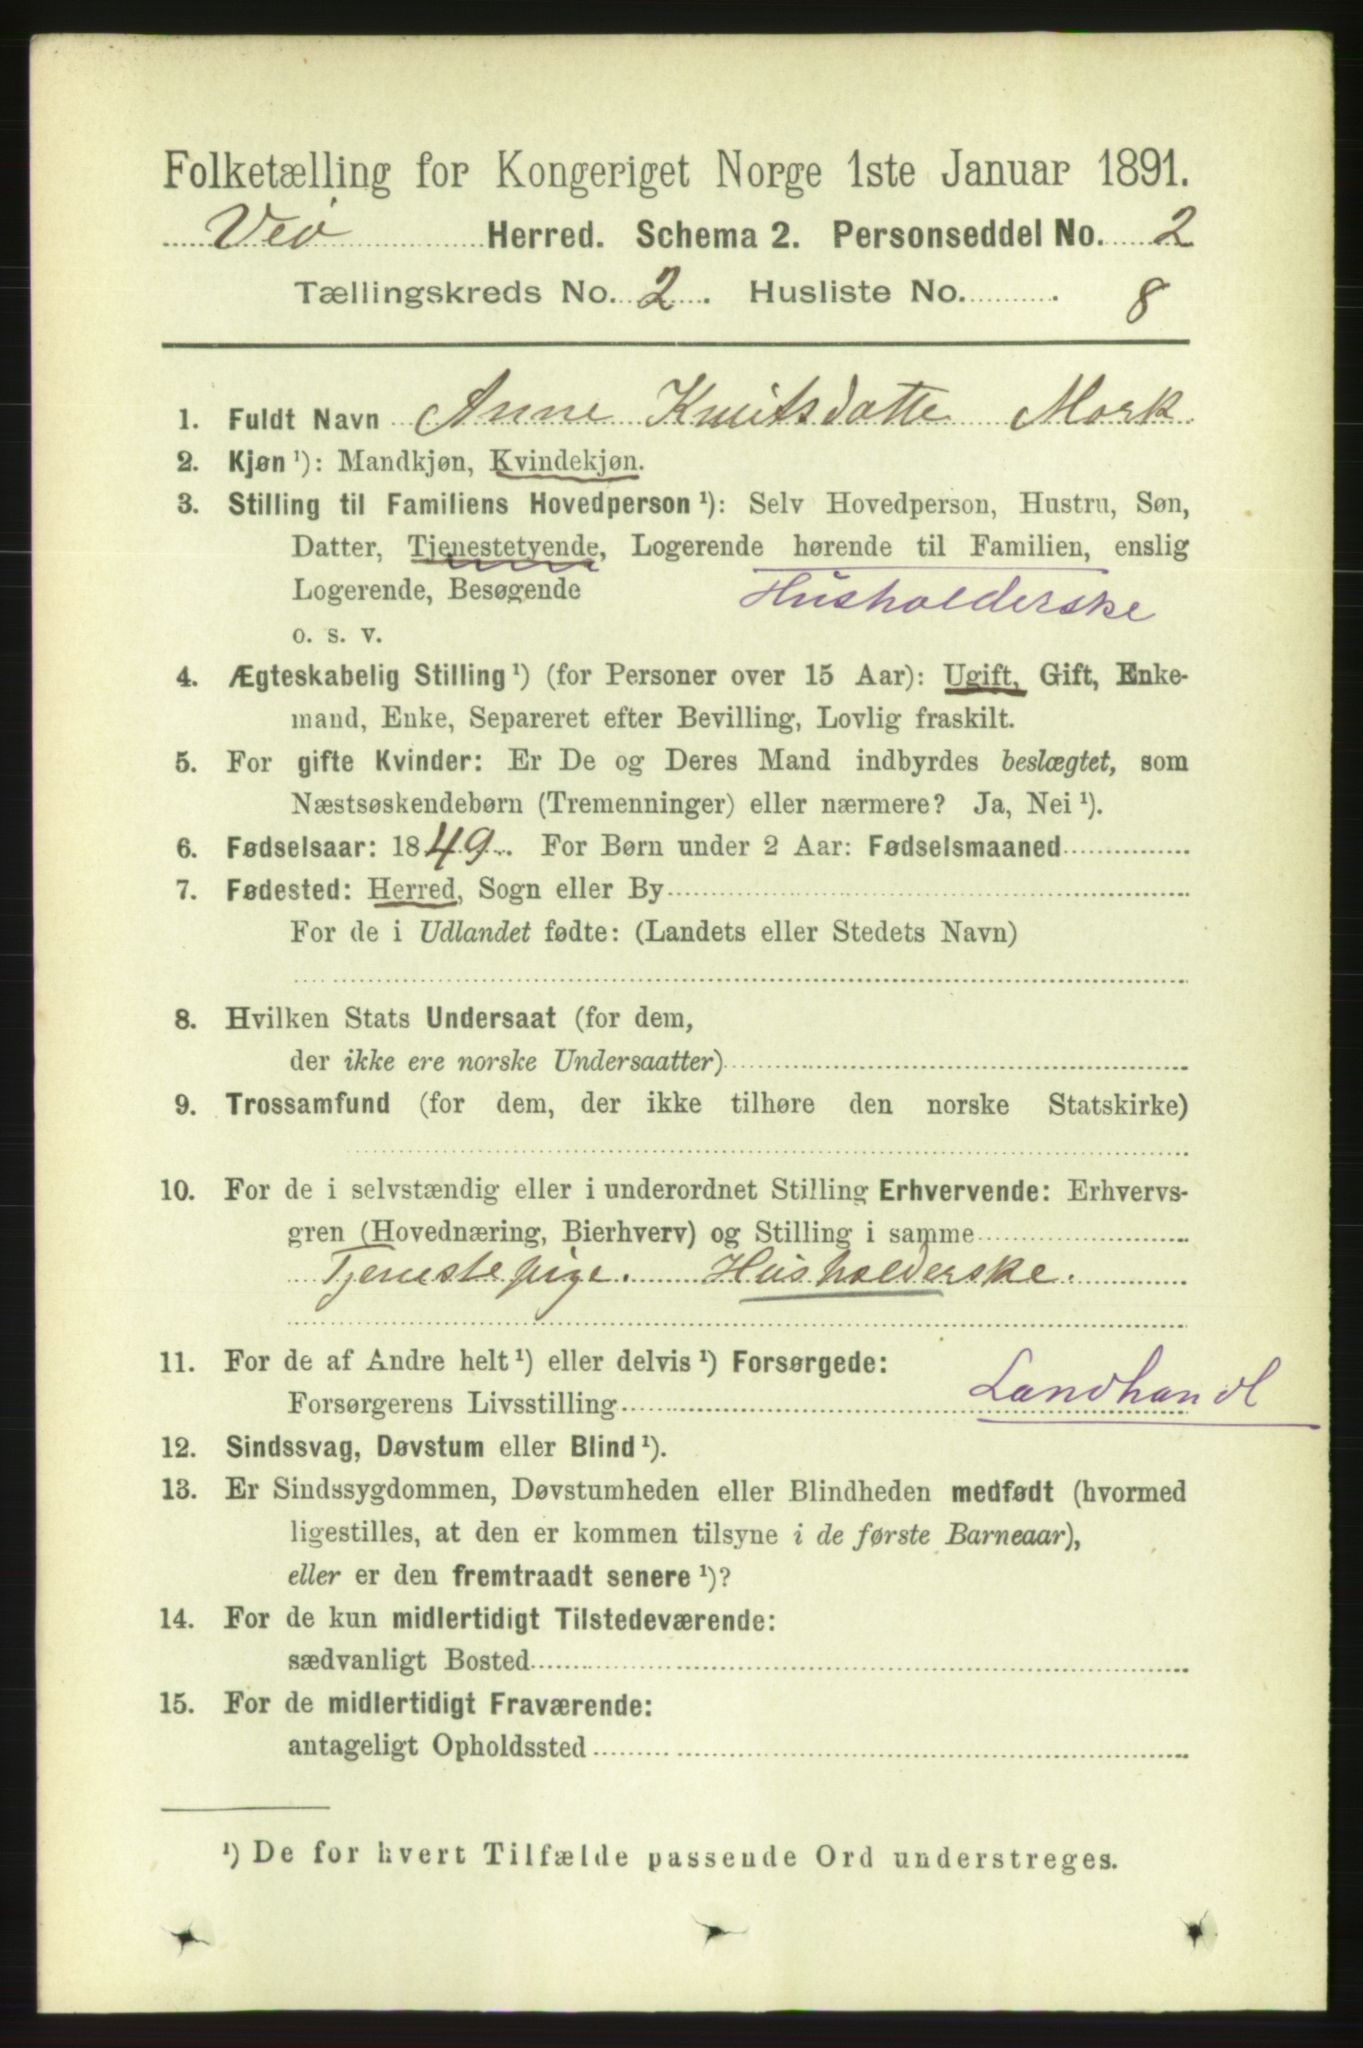 Folketælling for Kongeriget Norge 1ste Januar 1891.
Veø Herred. Schema 2. Personseddel No. 2
Tællingskreds No. 2. Husliste No. 8
1. Fuldt Navn Anne Knutsdatte Mork
2. Kjøn ¹): Mandkjøn, Kvindekjøn.
3. Stilling til Familiens Hovedperson ¹): Selv Hovedperson, Hustru, Søn,
Datter, Tjenestetyende, Logerende hørende til Familien, enslig
Logerende, Besøgende Husholderske
o. s. v.
4. Ægteskabelig Stilling ¹) (for Personer over 15 Aar): Ugift, Gift, Enke-
mand, Enke, Separeret efter Bevilling, Lovlig fraskilt.
5. For gifte Kvinder: Er De og Deres Mand indbyrdes beslægtet, som
Næstsøskendebørn (Tremenninger) eller nærmere? Ja, Nei ¹).
6. Fødselsaar: 1849. For Børn under 2 Aar: Fødselsmaaned
7. Fødested: Herred, Sogn eller By
For de i Udlandet fødte: (Landets eller Stedets Navn)
8. Hvilken Stats Undersaat (for dem,
der ikke ere norske Undersaatter)
9. Trossamfund (for dem, der ikke tilhøre den norske Statskirke)
10. For de i selvstændig eller i underordnet Stilling Erhvervende: Erhvervs-
gren (Hovednæring, Bierhverv) og Stilling i samme
Tjenestepige. Husholderske.
11. For de af Andre helt ¹) eller delvis ¹) Forsørgede:
Forsørgerens Livsstilling Landhandl
12. Sindssvag, Døvstum eller Blind ¹).
13. Er Sindssygdommen, Døvstumheden eller Blindheden medfødt (hvormed
ligestilles, at den er kommen tilsyne i de første Barneaar),
eller er den fremtraadt senere ¹)?
14. For de kun midlertidigt Tilstedeværende:
sædvanligt Bosted
15. For de midlertidigt Fraværende:
antageligt Opholdssted
¹) De for hvert Tilfælde passende Ord understreges.